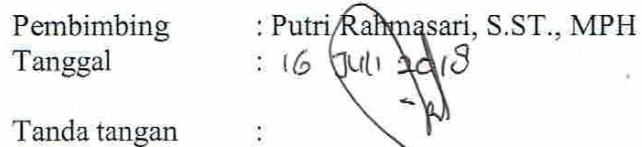 Pembimbing : Putri Rahmasari, S.ST., MPH
Tanggal : 16 Juli 2018
Tanda tangan :